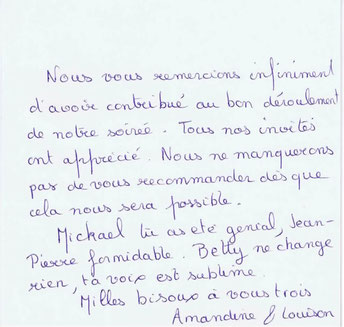 Nous vous remercions infiniment
d'avoir contribué au bon déroulement
de notre soirée. Tous nos invités
ont apprécié. Nous ne manquerons
pas de vous recommander dès que
cela nous sera possible.
Mickael tu as été genial, Jean-
Pierre formidable. Betty ne change
rien, ta voix est sublime.
Milles bisous à vous trois
Amandine & Louison